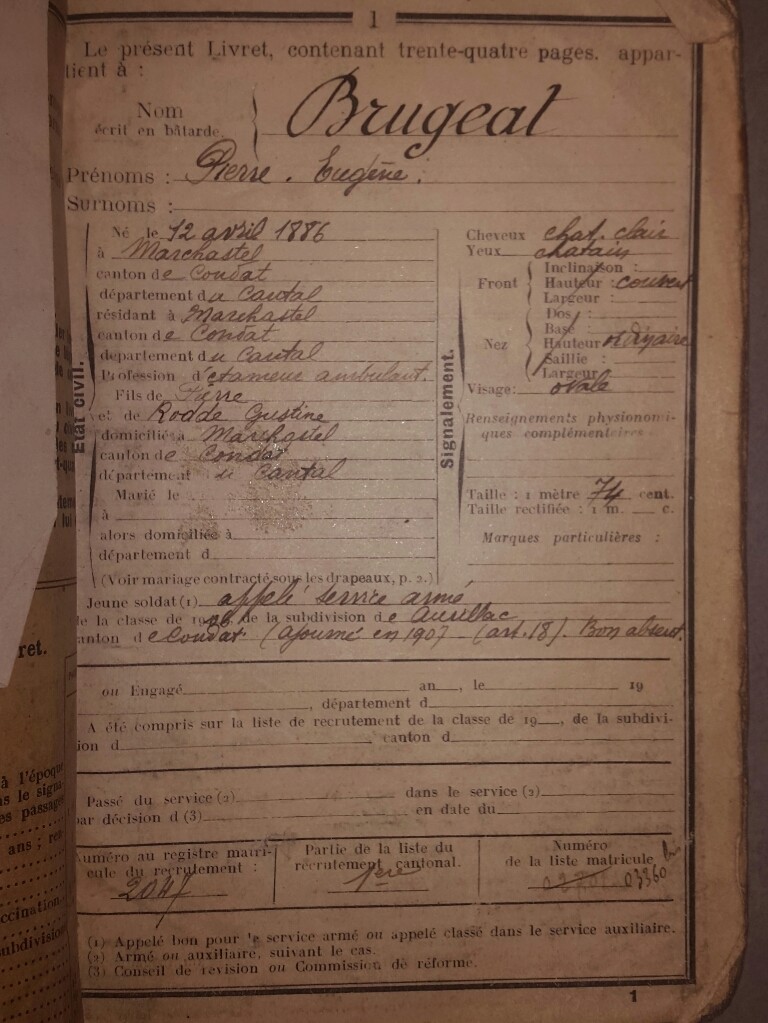 1
Le présent Livret, contenant trente-quatre pages, appar-
tient à :
Nom
écrit en bâtarde.
Brugeat
Prénoms : Pierre . Eugène.
Surnoms :
Etat civil.
Né le 12 avril 1886
à Marchastel
canton de Condat
département du Cantal
résidant à Marchastel
canton de Condat
département du Cantal
Profession d'étameur ambulant.
Fils de Pierre
et de Rodde Gustine
domiciliés à Marchastel
canton de Condat
département du Cantal
Marié le
à
alors domiciliée à
département d
(Voir mariage contracté sous les drapeaux, p. 2.)
Signalement.
Cheveux chat. clair
Yeux chatain
Front
Inclinaison :
Hauteur : couvert
Largeur :
Nez
Dos :
Base :
Hauteur ordinaire
Saillie :
Largeur
Visage: ovale
Renseignements physionomi-
ques complémentaires
Taille : 1 mètre 74 cent.
Taille rectifiée : 1 m. c.
Marques particulières :
Jeune soldat (1) appelé service armé
de la classe de 1906 de la subdivision de Aurillac
canton de Condat (ajourné en 1907 (art. 18). Bon absent.
ou Engagé an , le 19
, département d
A été compris sur la liste de recrutement de la classe de 19 , de la subdivi-
ion d canton d
Passé du service (2) dans le service (2)
par décision d (3) en date du
Numéro au registre matri-
cule du recrutement :
Partie de la liste du
recrutement cantonal.
1ère
Numéro
de la liste matricule
03360
(1) Appelé bon pour le service armé ou appelé classé dans le service auxiliaire.
(2) Armé ou auxiliaire, suivant le cas.
(3) Conseil de révision ou Commission de réforme.
1
ret.
à l'époque
s le signa-
es passages
ans ; re
ccination
subdivision